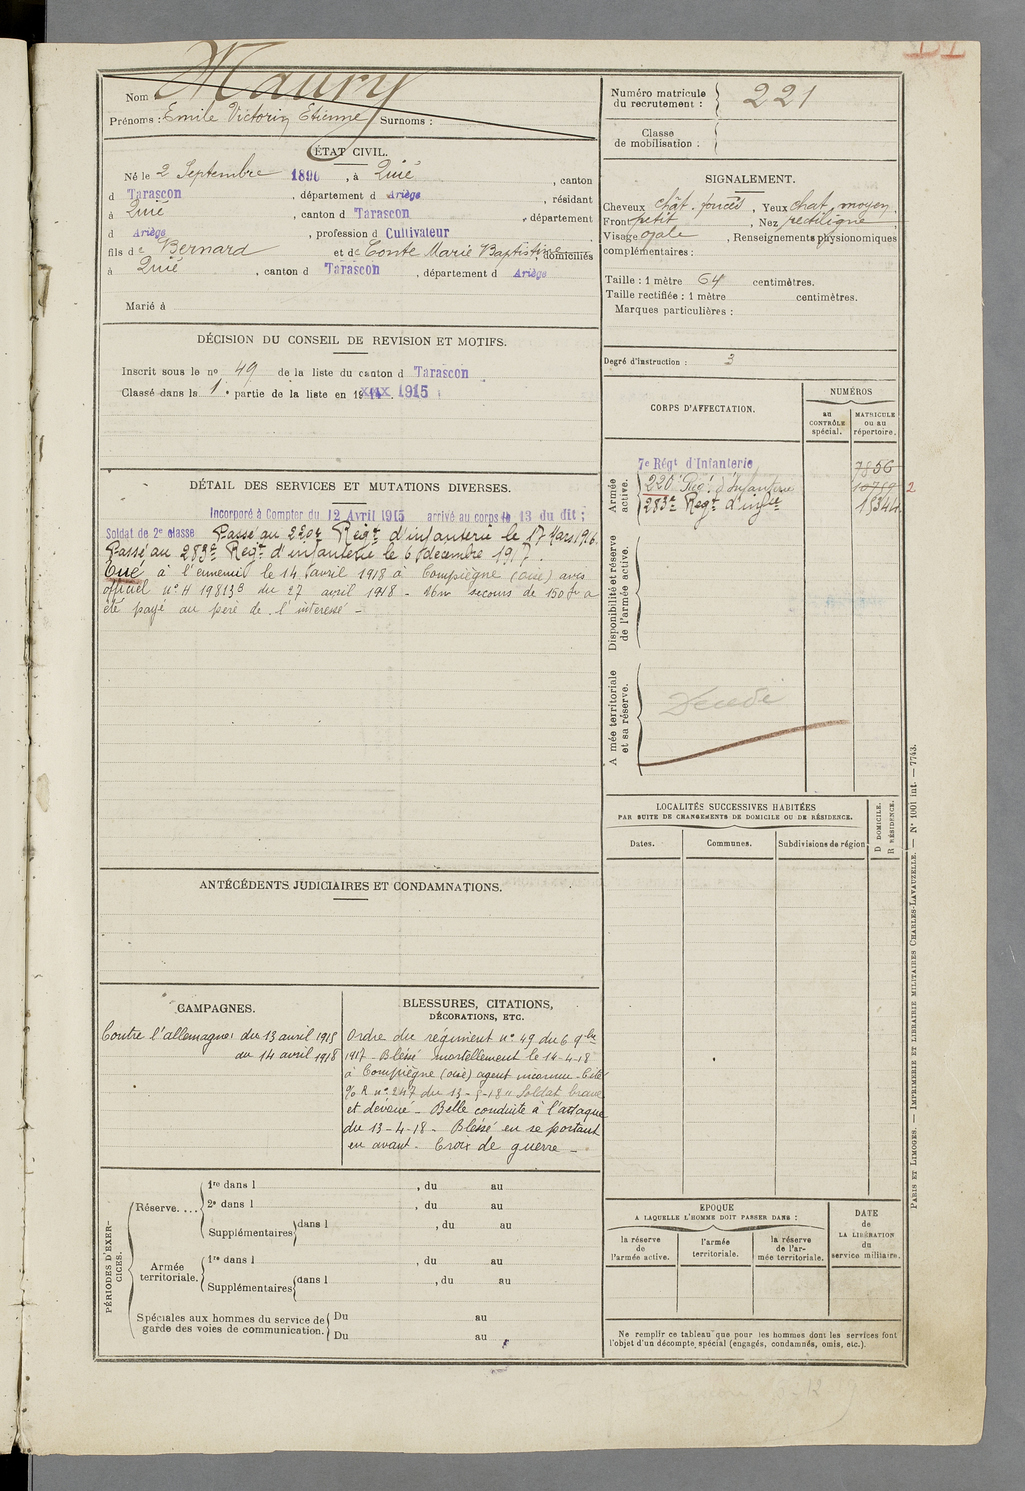 Nom Maury
Prénoms : Emile Victorin Etienne Surnoms :
Numéro matricule du recrutement : 221
Classe de mobilisation :
ÉTAT CIVIL.
Né le 2 Septembre, à Quié, canton
d Tarascon, département d Ariège, résidant
à Quié, canton d Tarascon, département
d Ariège, profession d Cultivateur
fils de Bernard et de Conte Marie Baptistine, domiciliés
à Quié, canton d Tarascon, département d Ariège
Marié à
SIGNALEMENT.
Cheveux chât. foncés, Yeux chat. moyen
Front petit, Nez rectiligne
Visage ovale, Renseignements physionomiques
complémentaires :
Taille : 1 mètre 64 centimètres.
Taille rectifiée : 1 mètre centimètres.
Marques particulières :
Degré d'instruction : 3
DÉCISION DU CONSEIL DE REVISION ET MOTIFS.
Inscrit sous le n° 49 de la liste du canton d Tarascon
Classé dans la 1e partie de la liste en 1915
CORPS D'AFFECTATION.
NUMÉROS
au CONTRÔLE spécial.
MATRICULE ou au répertoire.
Armée active.
7e Régt d'Infanterie 7856
220e Rég. d'Infanterie
283e Régt d'inftie
2
Disponibilité et réserve de l'armée active.
A mée territoriale et sa réserve.
Décédé
DÉTAIL DES SERVICES ET MUTATIONS DIVERSES.
Incorporé à Compter du 12 Avril 1915 arrivé au corps le 13 du dit ;
Soldat de 2e classe Passé au 220e Régt d'infanterie le 17 Mars 1916.
Passé au 283e Régt d'infanterie le 6 décembre 1917.
Tué à l'ennemi le 14 avril 1918 à Compiègne (Oise) avis
officiel n° du 27 avril 1918 - secours de 150 fr a
été payé au père de l'intéressé -
LOCALITÉS SUCCESSIVES HABITÉES
PAR SUITE DE CHANGEMENTS DE DOMICILE OU DE RÉSIDENCE.
Dates.
Communes.
Subdivisions de région
D DOMICILE.
R RÉSIDENCE.
ANTÉCÉDENTS JUDICIAIRES ET CONDAMNATIONS.
CAMPAGNES.
Contre l'allemagne : du 13 avril 1915
au 14 avril 1918
BLESSURES, CITATIONS,
DÉCORATIONS, ETC.
Ordre du régiment n° 49 du 6 9bre
1917 - Blessé mortellement le 14-4-18
à Compiègne (oise) agent inconnu - Cité
n° 247 du "Soldat brave
et dévoué - Belle conduite à l'attaque
du 13-4-18 - Blessé en se portant
en avant - Croix de guerre -
PÉRIODES D'EXERCICES.
Réserve....
1re dans l , du au
2e dans l , du au
Supplémentaires dans l , du au
Armée territoriale.
1re dans l , du au
Supplémentaires dans l , du au
Spéciales aux hommes du service de garde des voies de communication.
Du au
Du au
EPOQUE
A LAQUELLE L'HOMME DOIT PASSER DANS :
la réserve de l'armée active.
l'armée territoriale.
la réserve de l'armée territoriale.
DATE de LA LIBÉRATION du service militaire.
Ne remplir ce tableau que pour les hommes dont les services font
l'objet d'un décompte spécial (engagés, condamnés, omis, etc.).
PARIS ET LIMOGES. — IMPRIMERIE ET LIBRAIRIE MILITAIRES CHARLES-LAVAUZELLE. — N° 1001 int. — 7743.